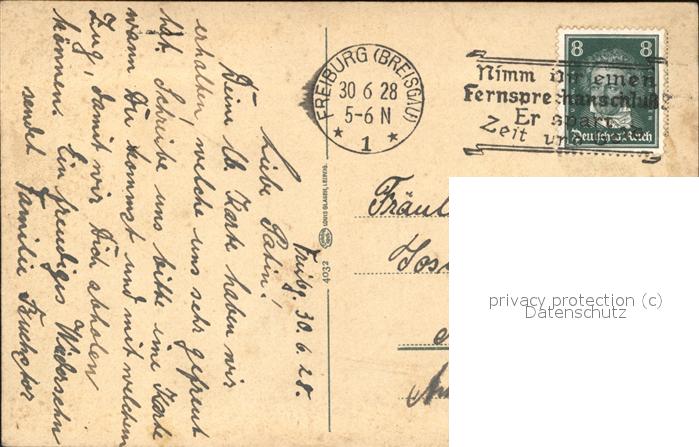 Freibg. 30.6.28.
Liebe Patin!
Deine lb. Karte haben wir
erhalten, welche uns sehr gefreut
hat. Schreibe uns bitte eine Karte
wann Du kommst und mit welchem
Zug, damit wir Dich abholen
können. Ein freudiges Wiedersehn
sendet Familie
FREIBURG (BREISGAU)
30 6 28
5-6 N
* 1 *
Nimm dir einen
Fernsprechanschluß
Er spart
Zeit und
8 8
Deutsches Reich
LOUIS GLASER, LEIPZIG.
4032
Fräul
Jos
privacy protection (c)
Datenschutz